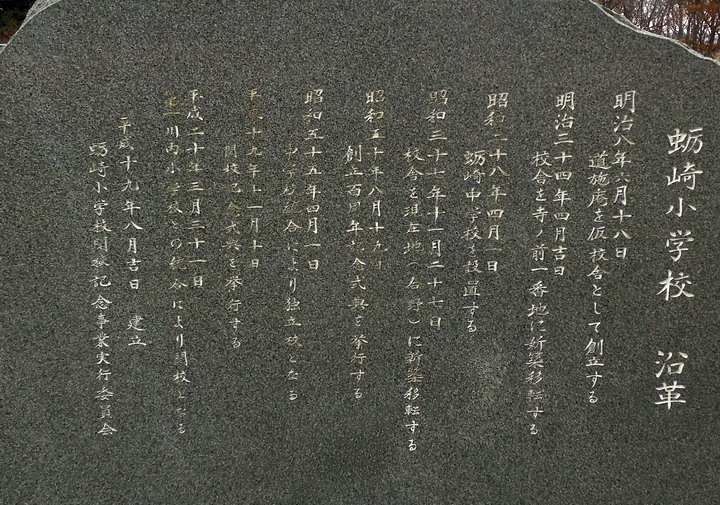 蛎崎小学校 沿革
明治八年六月十八日
道施庵を仮校舎として創立する
明治三十四年四月吉日
校舎を寺ノ前一番地に新築移転する
昭和二十八年四月一日
蛎崎中学校を設置する
昭和三十七年十一月二十七日
校舎を現在地(石野)に新築移転する
昭和五十年八月十九日
創立百周年記念式典を挙行する
昭和五十五年四月一日
中学校統合により独立校となる
平成十九年十一月十日
閉校記念式典を挙行する
平成二十年三月三十一日
第一川内小学校との統合により閉校となる
平成十九年八月吉日 建立
蛎崎小学校閉校記念事業実行委員会